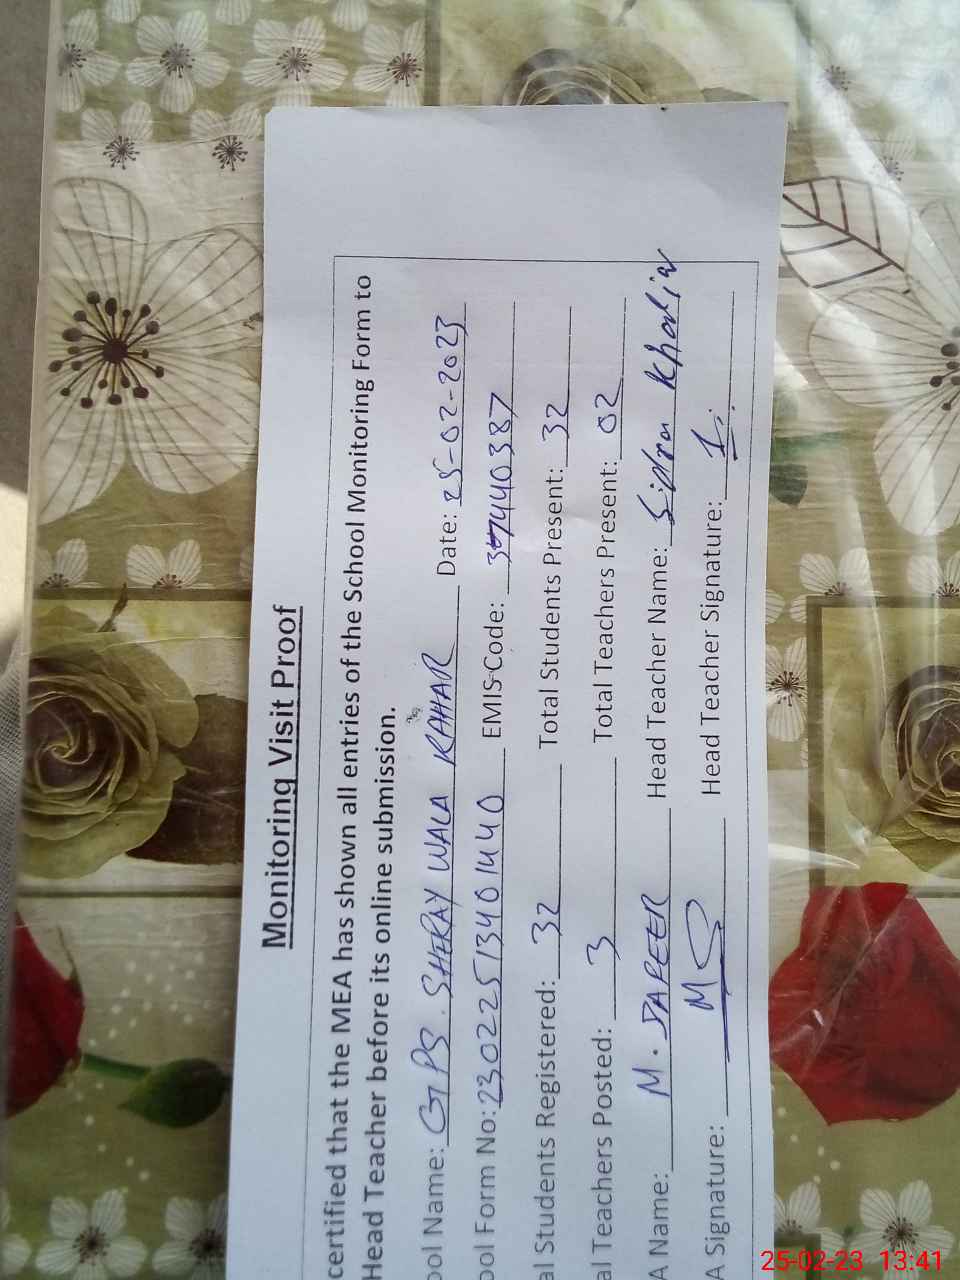 Monitoring Visit Proof
certified that the MEA has shown all entries of the School Monitoring Form to
Head Teacher before its online submission.
ool Name: GPS. SHERAY WALA KAHAR Date: 25-02-2023
ool Form No: 23022513401440 EMIS Code: 37440387
al Students Registered: 32 Total Students Present: 32
al Teachers Posted: 3 Total Teachers Present: 02
A Name: M. SAPEER Head Teacher Name: Sidra Khadija
A Signature: Head Teacher Signature:
25-02-23 13:41